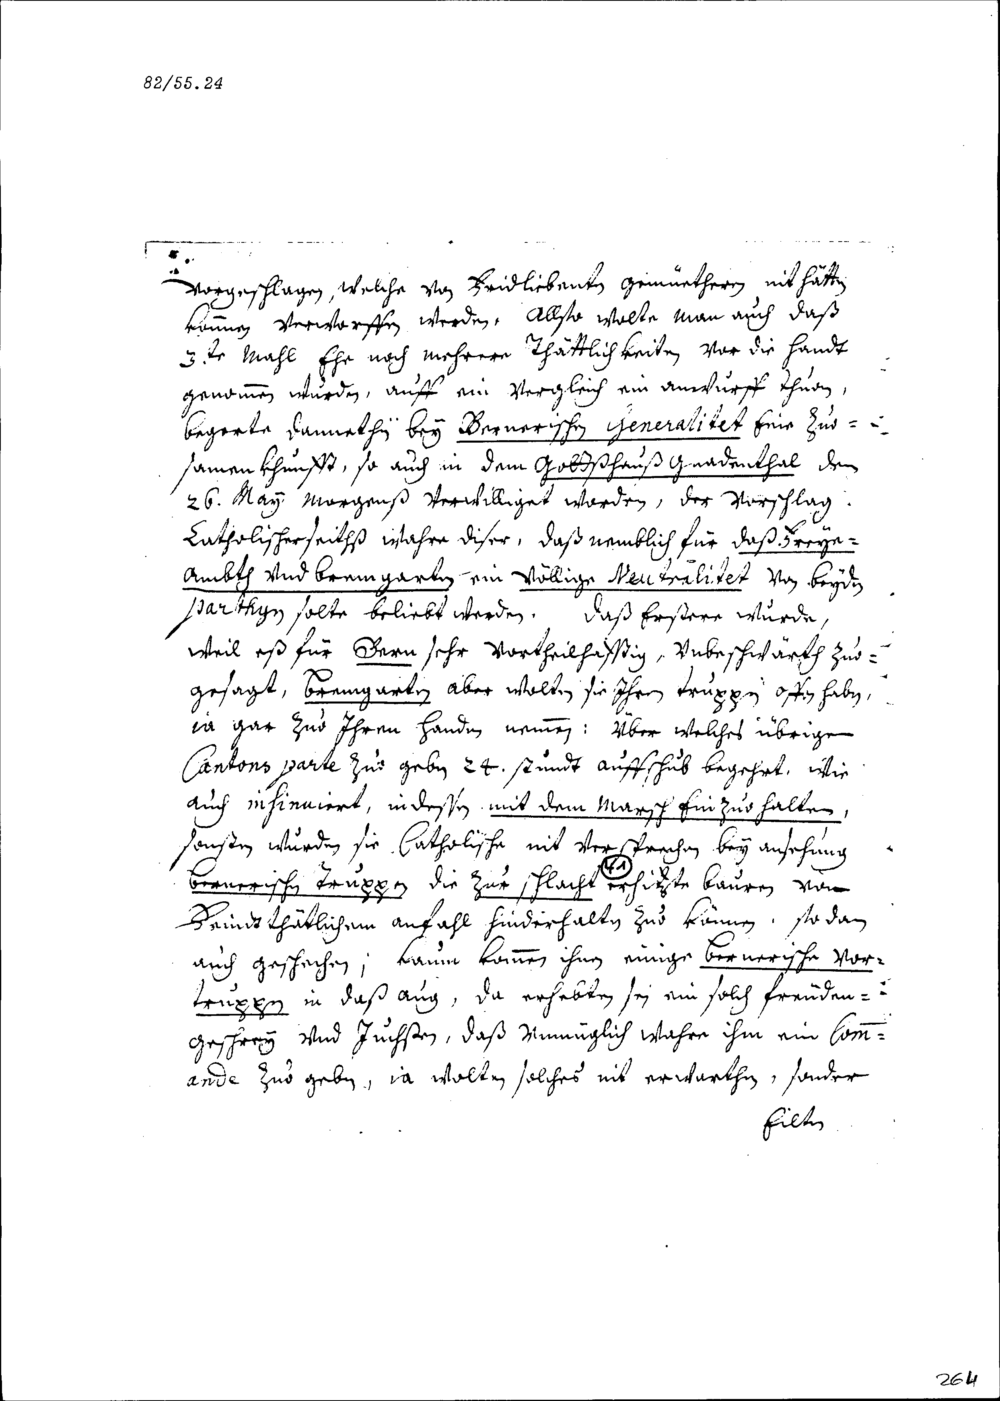 82/55.24
vorgeschlagen, welche von Fridliebenten gemüetheren nit hätten
können verworffen werden. Allso wolte man auch daß
3.te Mahl Ehe noch mehrere Thättlichkeiten vor die handt
genommen wurden, auff ein Vergleich ein anwurff thuon,
begerte dannethin beÿ Bernerischen Generalitet Eine Zuo=
samenkhunfft, so auch in dem Gottßhauß Gnadenthal den
26. Maÿ Morgenß verwilliget worden, der Vorschlag
Catholischerseithß wahre diser, daß nemblich für daß Freye=
Ambth und Bremgarten ein völlige Neutralitet von beyden
parthyen solte beliebt werden. Daß Erstere wurde,
weil eß für Bern sehr vortheilhafftig, unbeschwärth Zuo=
gesagt, Bremgarten aber wolten sie Ihren truppen offen haben,
ia gar Zuo Ihren handen nemmen: Über welches übrigen
Cantons parte Zuo geben 24. stundt auffschub begehrt, wie
auch insinuiert, indessen mit dem Marsch Einzuohalten,
sonsten wurden sie Catholische nit versprechen beÿ ansehung
Bernerischen Truppen die zur schlacht erhitzte bauren von
41
Feindtthätlichem anfahl hinderhalten Zuo können. so dan
auch geschechen; kaum kommen ihnen einige Bernerische Vor=
truppen in daß aug, da erhebten sei ein solch freüden=
geschreÿ und Juchsen, daß unmüglich wahre ihm ein Comm=
ande Zuo geben, ia wolten solches nit erwarthen, sonder
Eilten
264